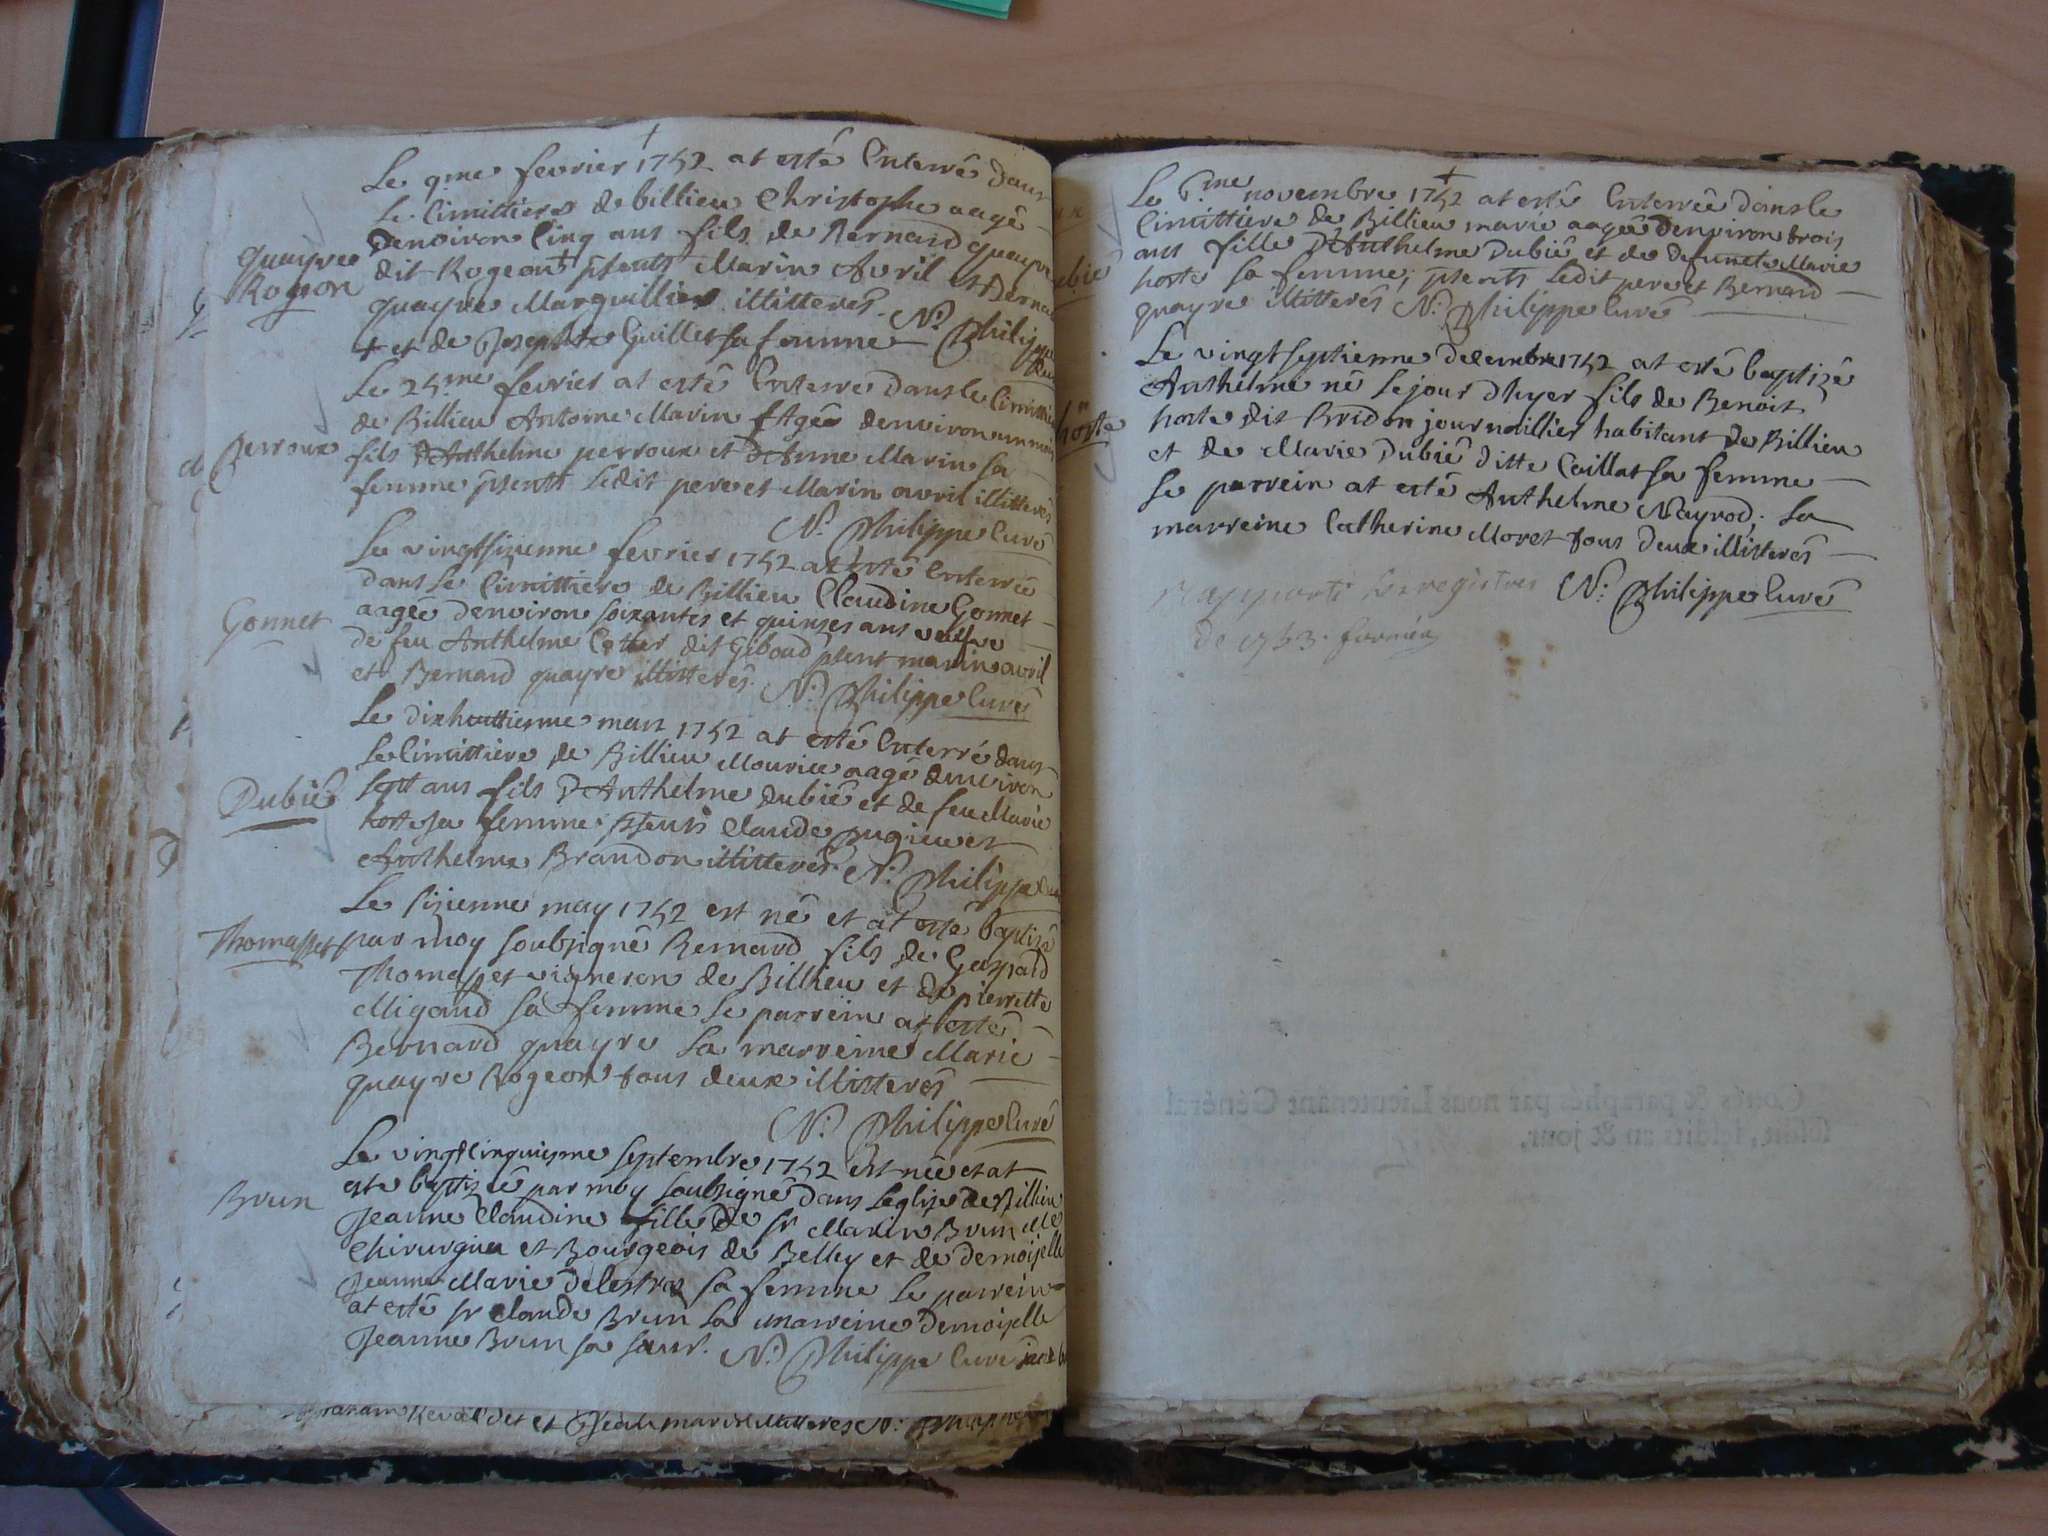 Le 9me fevrier 1752 at esté Enterré dans
Le Cimittiere de billieu Christophe aagé
Denviron Cinq ans fils de Bernard quayre
quayre
Rogeon
dit Rogeon + psents Marin Avril et Berna
quayre Marguillier illitterés. N. Philippe
+ et de Josephte Guillet sa femme
Curé
Le 25me fevrier at esté Enterré dans le Cimittie
de Billieu Antoine Marin Agée denviron un mois
Perroux
fils D'Anthelme perroux et d'Anne Marin sa
femme psents Ledit pere et Marin avril illitterés
N. Philippe Curé
Le vingtsizienne fevrier 1752 at esté Enterrée
dans Le Cimittiere de Billieu Claudine Gonnet
Gonnet
aagée denviron soixantes et quinzes ans veufve
de feu Anthelme Cotter dit Giboud psent marin avril
et Bernard quayre illitterés. N. Philippe Curé
Le dixhuittienne mars 1752 at esté Enterré dans
Le Cimittiere de Billieu Mourice aagé denviron
Dubié
sept ans fils D'Anthelme dubié et de feu Marie
horte sa femme: psents Claude Pugieu et
Anthelme Brandon illitterés. N. Philippe Cu
Le sizienne may 1752 est né et at esté baptizé
Thomasset
par moy soubsigné Bernard fils de Gaspard
Thomasset vigneron de Billieu et de pierrette
Migand sa femme Le parrein at esté
Bernard quayre La marreine Marie
quayre Rogeon tous deux illitterés
N. Philippe Curé
Le vingtcinquiesme septembre 1752 Est née et at
esté baptizée par moy soubsigné dans Leglize de Billieu
Brun
Jeanne Claudine fille de sr Marin Brun Me
Chirurgien et Bourgeois de Belley et de demoiselle
Jeanne Marie Delestraz sa femme Le parrein
at esté sr Claude Brun La marreine Demoiselle
Jeanne Brun sa sœur. N. Philippe Curé
et illitterés N.
Le 6me novembre 1752 at esté Enterrée dans le
Cimittiere de Billieu marie aagée denviron trois
ans fille D'Anthelme Dubié et de defuncte Marie
bié
horte sa femme; psents Ledit pere et Bernard
quayre illitterés N. Philippe Curé
Le vingtseptienne decembre 1752 at esté baptizé
Anthelme né Le jour d'hyer fils de Benoit
horte
horte dit Bridon journaillier habitant de Billieu
et de Marie Dubié ditte Caillat sa femme
Le parrein at esté Anthelme Nayrod; La
marreine Catherine Moret tous deux illitterés
N. Philippe Curé
Rapporté Les registres
de 1753.
Cottés & paraphés par nous Lieutenant Général
susdit, lesdits an & jour.